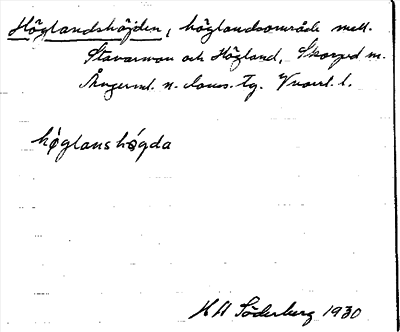 Höglandshöjden, höglandsområde mell.
Stavarman och Högland, Skorped sn.
Ångerml. n. doms. tg. Vnorrl. l.
høglanshǿgda
H H Söderberg 1930